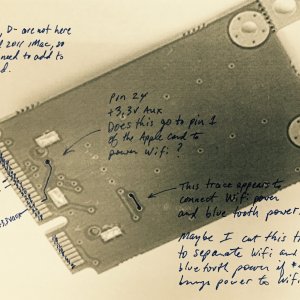 , D- are not here
2011 iMac, so
need to add to
d.
Pin 24
+3.3V Aux
Does this go to pin 1
of the Apple card to
power Wifi?
This trace appears to
connect Wifi power
and blue tooth power
Maybe I cut this tr
to separate wifi and
bluetooth power if
brings power to Wifi